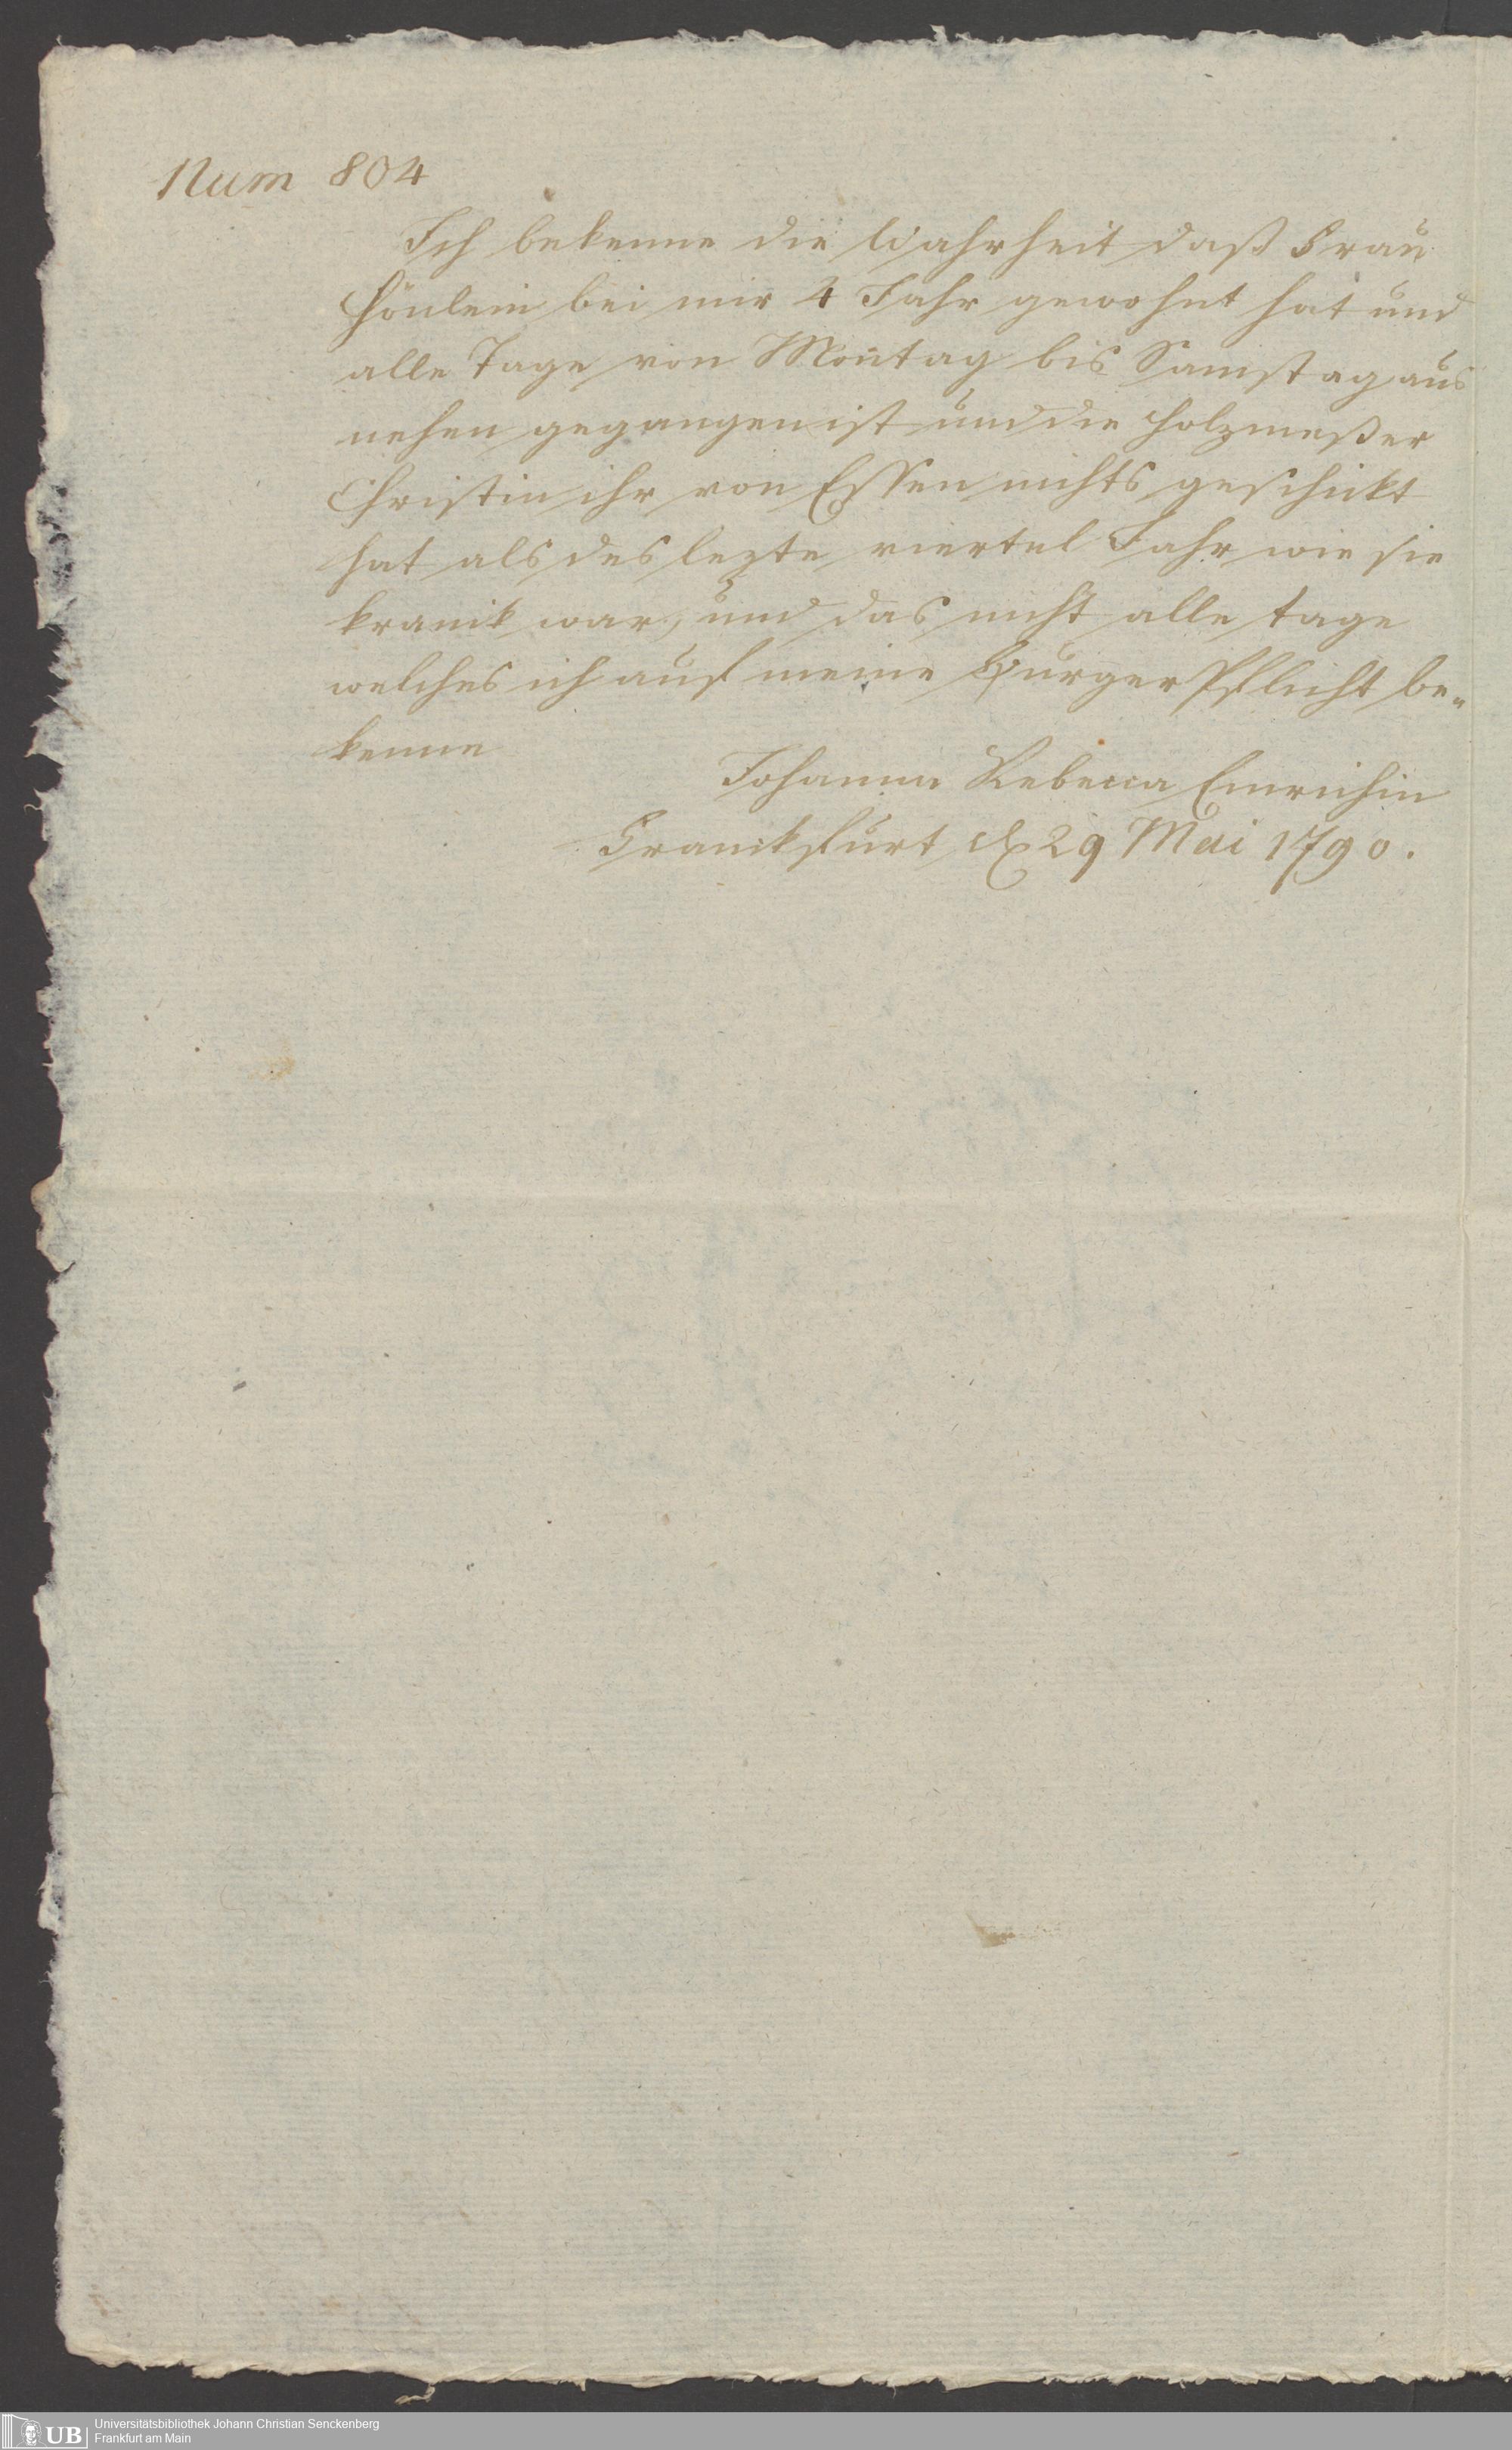 Num 804
Ich bekenne die Wahrheit daß Frau
Hönlein bei mir 4 Jahr gewohnt hat und
alle Tage von Montag bis Samstag aus
nehen gegangen ist und die Holzmeßer
Christin ihr von Essen nichts geschickt
hat als des lezte viertel Jahr wie sie
kranck war, und das nicht alle tage
welches ich auf meine Burger Pflicht be-
kenne
Johanna Rebecca Emrichin
Franckfurt d 29 Mai 1790.
UB
Universitätsbibliothek Johann Christian Senckenberg
Frankfurt am Main